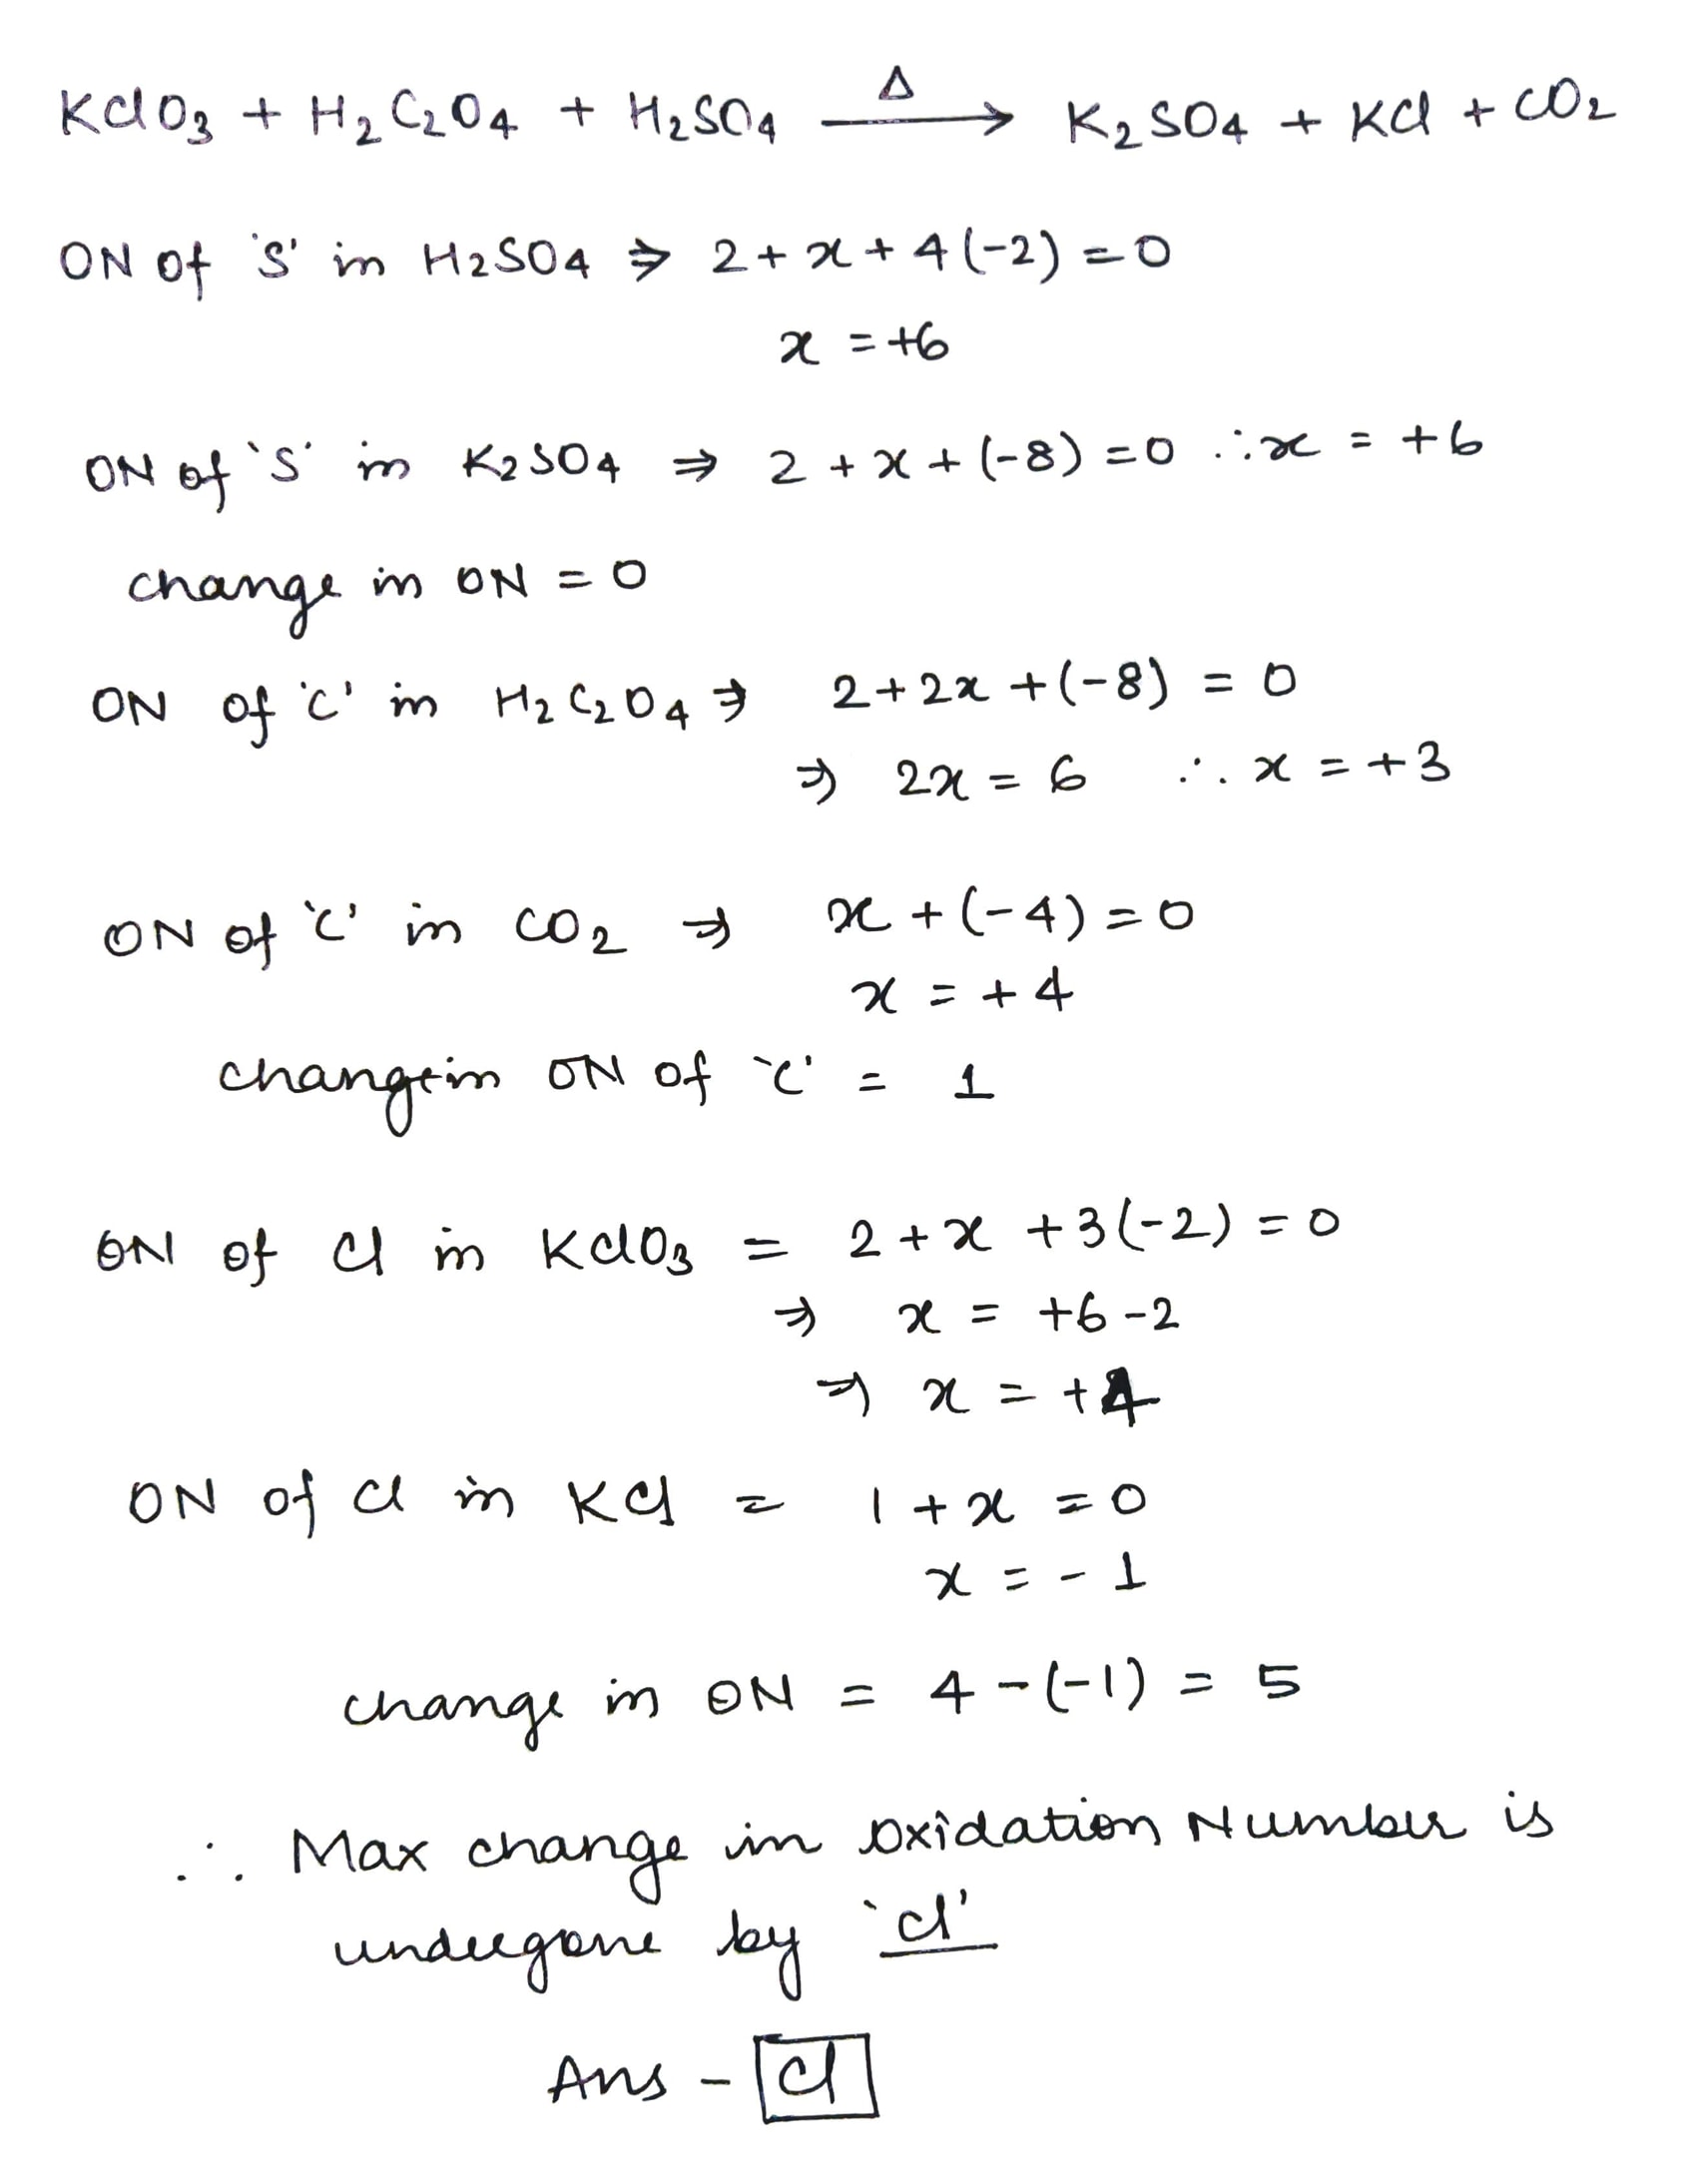 KClO3 + H2C2O4 + H2SO4 —Δ→ K2SO4 + KCl + CO2
ON of 'S' in H2SO4 ⇒ 2 + x + 4(-2) = 0
x = +6
ON of 'S' in K2SO4 ⇒ 2 + x + (-8) = 0 ∴ x = +6
change in ON = 0
ON of 'C' in H2C2O4 ⇒ 2 + 2x + (-8) = 0
⇒ 2x = 6 ∴ x = +3
ON of 'C' in CO2 ⇒ x + (-4) = 0
x = +4
change in ON of 'C' = 1
ON of Cl in KClO3 = 2 + x + 3(-2) = 0
⇒ x = +6 - 2
⇒ x = +4
ON of Cl in KCl = 1 + x = 0
x = -1
change in ON = 4 - (-1) = 5
∴ Max change in oxidation Number is
undergone by 'Cl'
Ans - Cl